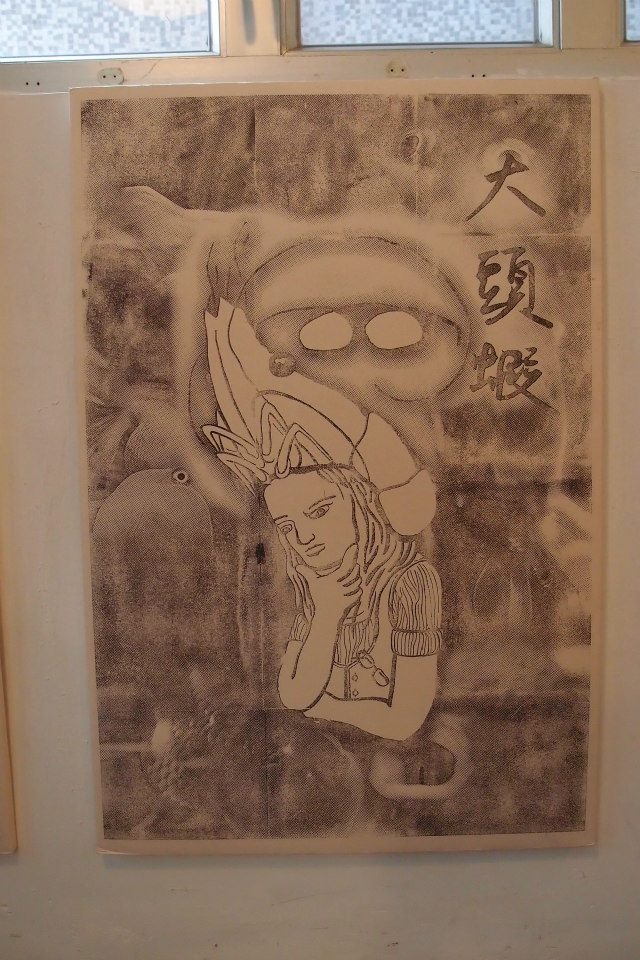 大頭蝦